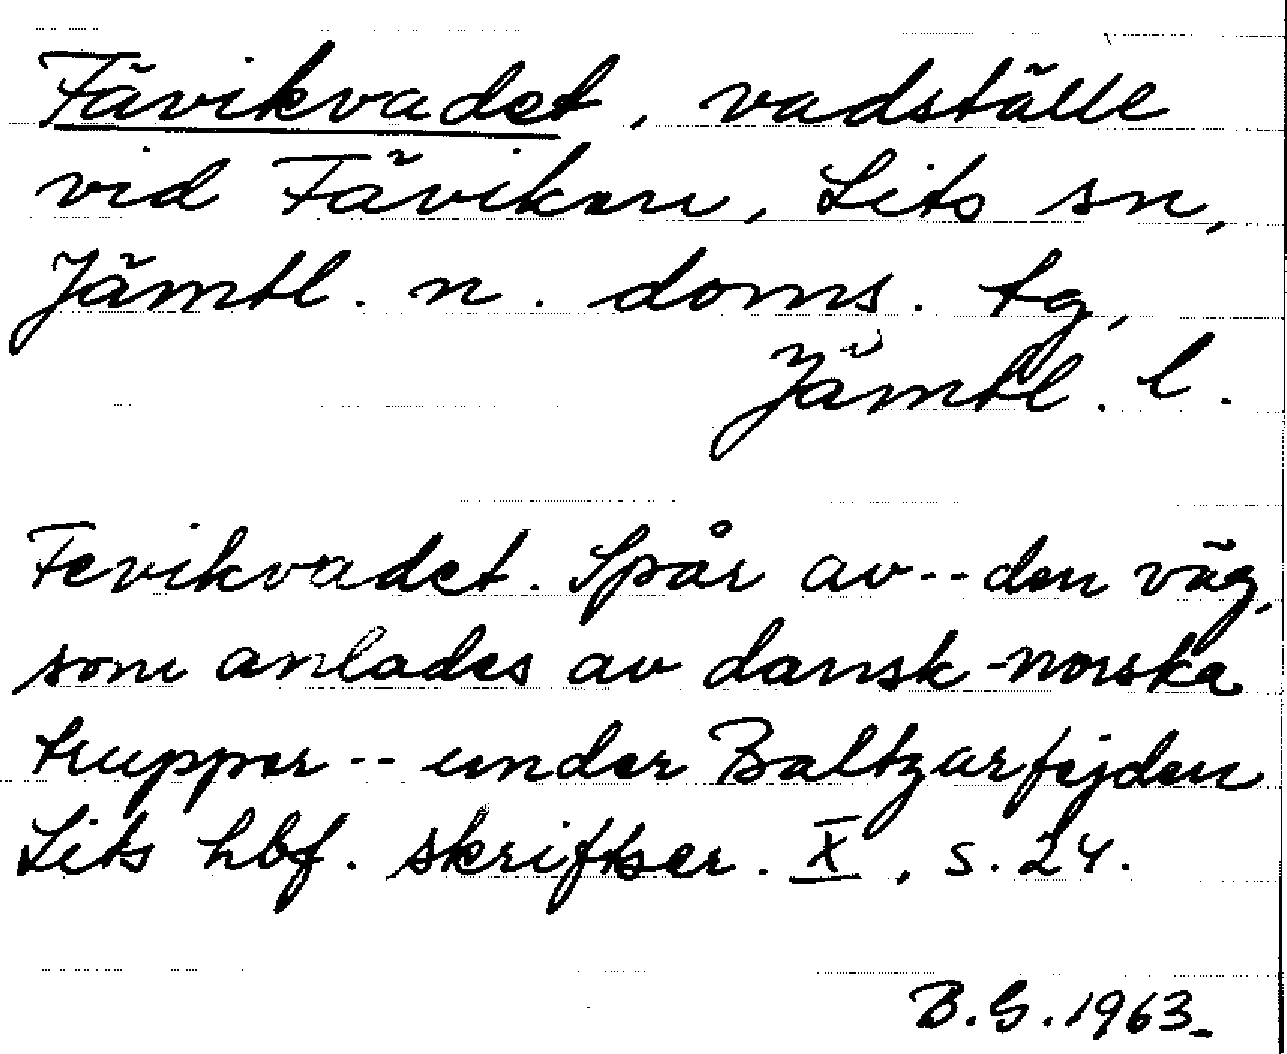 Fävikvadet, vadställe
vid Fäviken, Lits sn,
Jämtl. n. doms. tg,
Jämtl. l.
Fevikvadet. Spår av -- den väg,
som anlades av dansk-norska
trupper -- under Baltzarfejden
Lits hbf. skriftser. X, s. 24.
B.G. 1963.